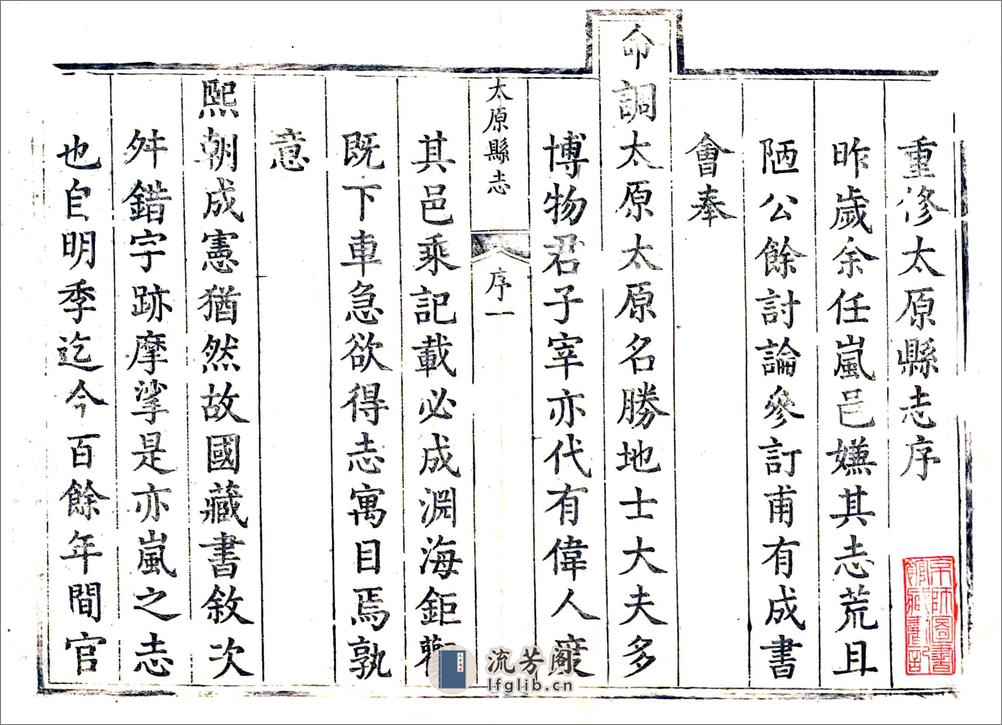 重修太原縣志序
昨歲余任嵐邑嫌其志荒且
陋公餘討論參訂甫有成書
會奉
命調太原太原名勝地士大夫多
博物君子宰亦代有偉人度
太原縣志
序一
其邑乘記載必成淵海鉅觀
既下車急欲得志寓目焉孰
意
熙朝成憲猶然故國藏書敘次
舛錯字跡摩挲是亦嵐之志
也自明季迄今百餘年間官
京師圖書館藏書記
流芳阁
lfglib.cn